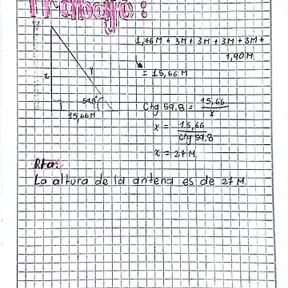 Trabajo:
1,76M + 3M + 3M + 3M + 3M +
1,90M
= 15,66M
x
y
59.8°
15,66M
Ctg 59.8 = 15,66 / x
x = 15,66 / Ctg 59.8
x = 27M
Rta:
La altura de la antena es de 27M